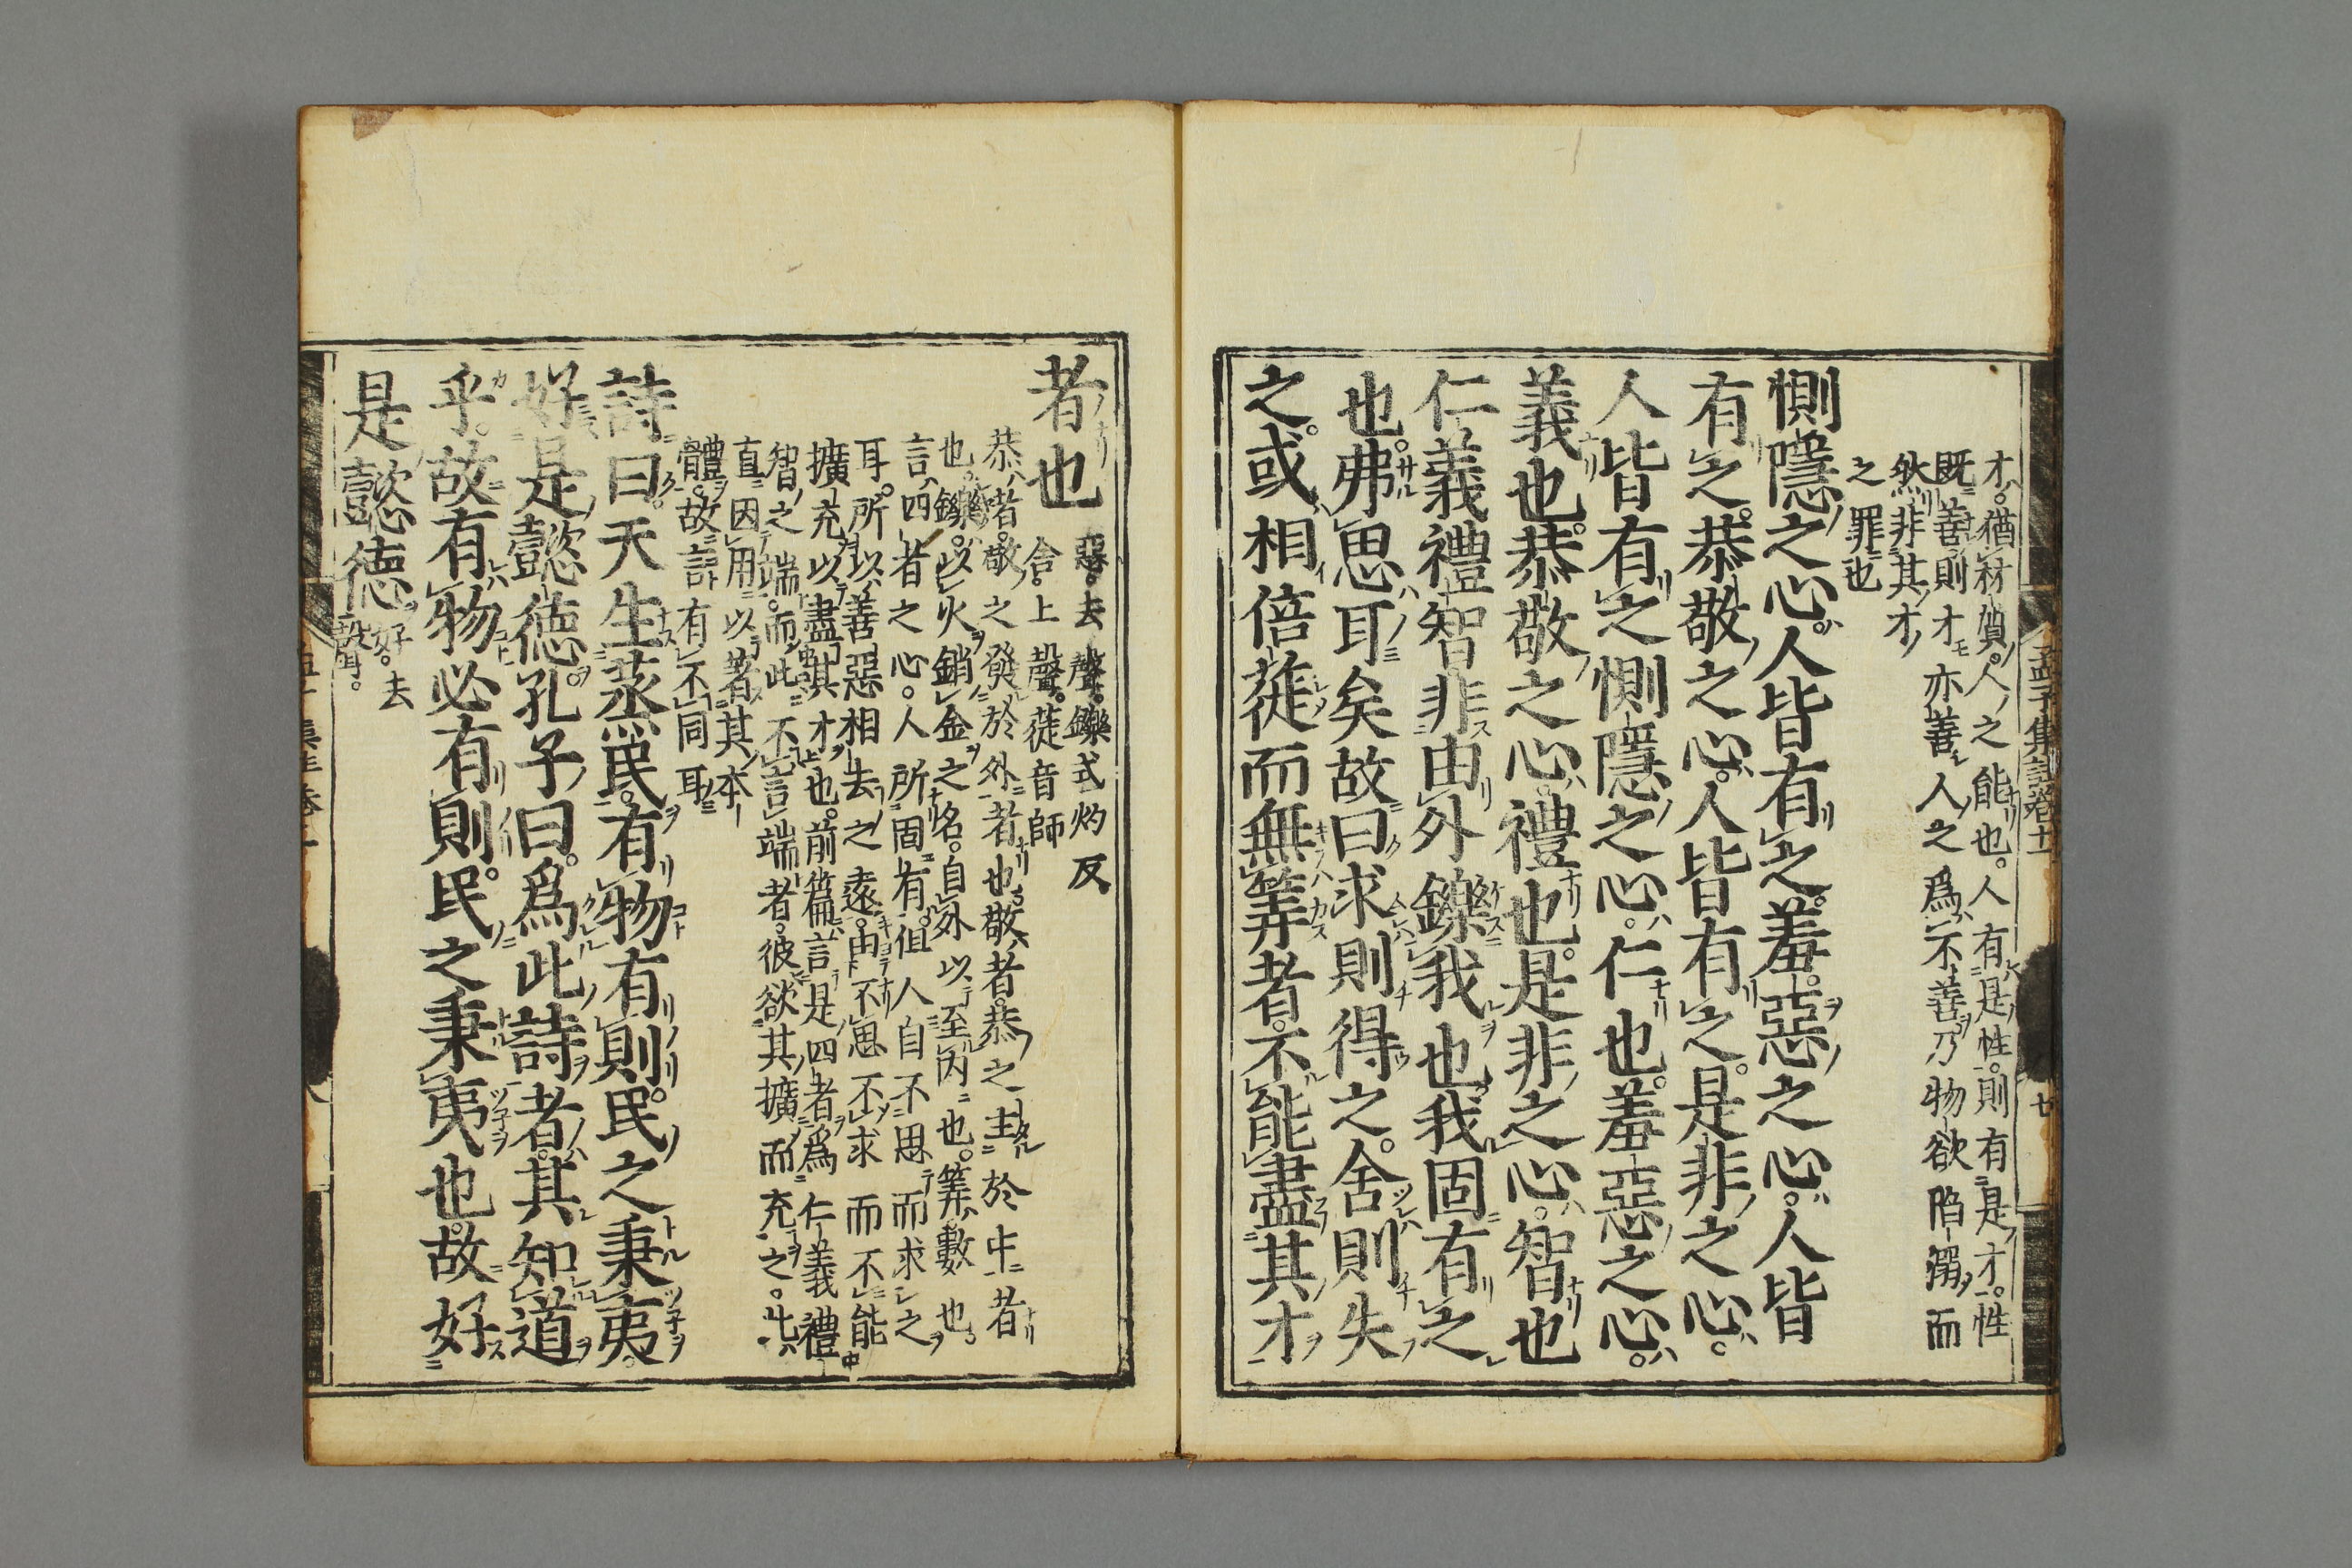 才。猶材質。人之能也。人有是性。則有是才。性
既善。則才亦善。人之爲不善。乃物欲陷溺而
然。非其才
之罪也
惻隱之心。人皆有之。羞惡之心。人皆
有之。恭敬之心。人皆有之。是非之心。
人皆有之惻隱之心。仁也。羞惡之心。
義也。恭敬之心。禮也。是非之心。智也
仁義禮智非由外鑠我也。我固有之
也。弗思耳矣故曰。求則得之。舍則失
之。或相倍蓰而無筭者。不能盡其才
孟子集註卷十一
七
者也
惡。去聲。鑠。式灼反
舍。上聲。蓰音師
恭者。敬之發於外者也。敬者。恭之主於中者
也。鑠。以火銷金之名。自外以至内也。筭。數也。
言四者之心。人所固有。但人自不思而求之
耳。所以善惡相去之遠。由不思不求而不能
擴充以盡其才也。前篇言是四者爲仁義禮
智之端。而此不言端者。彼欲其擴而充之。此
直因用以著其本
體。故言有不同耳
詩曰。天生蒸民。有物有則。民之秉夷。
好是懿德。孔子曰。爲此詩者。其知道
乎。故有物必有則。民之秉夷也。故好
是懿德
好。去
聲。